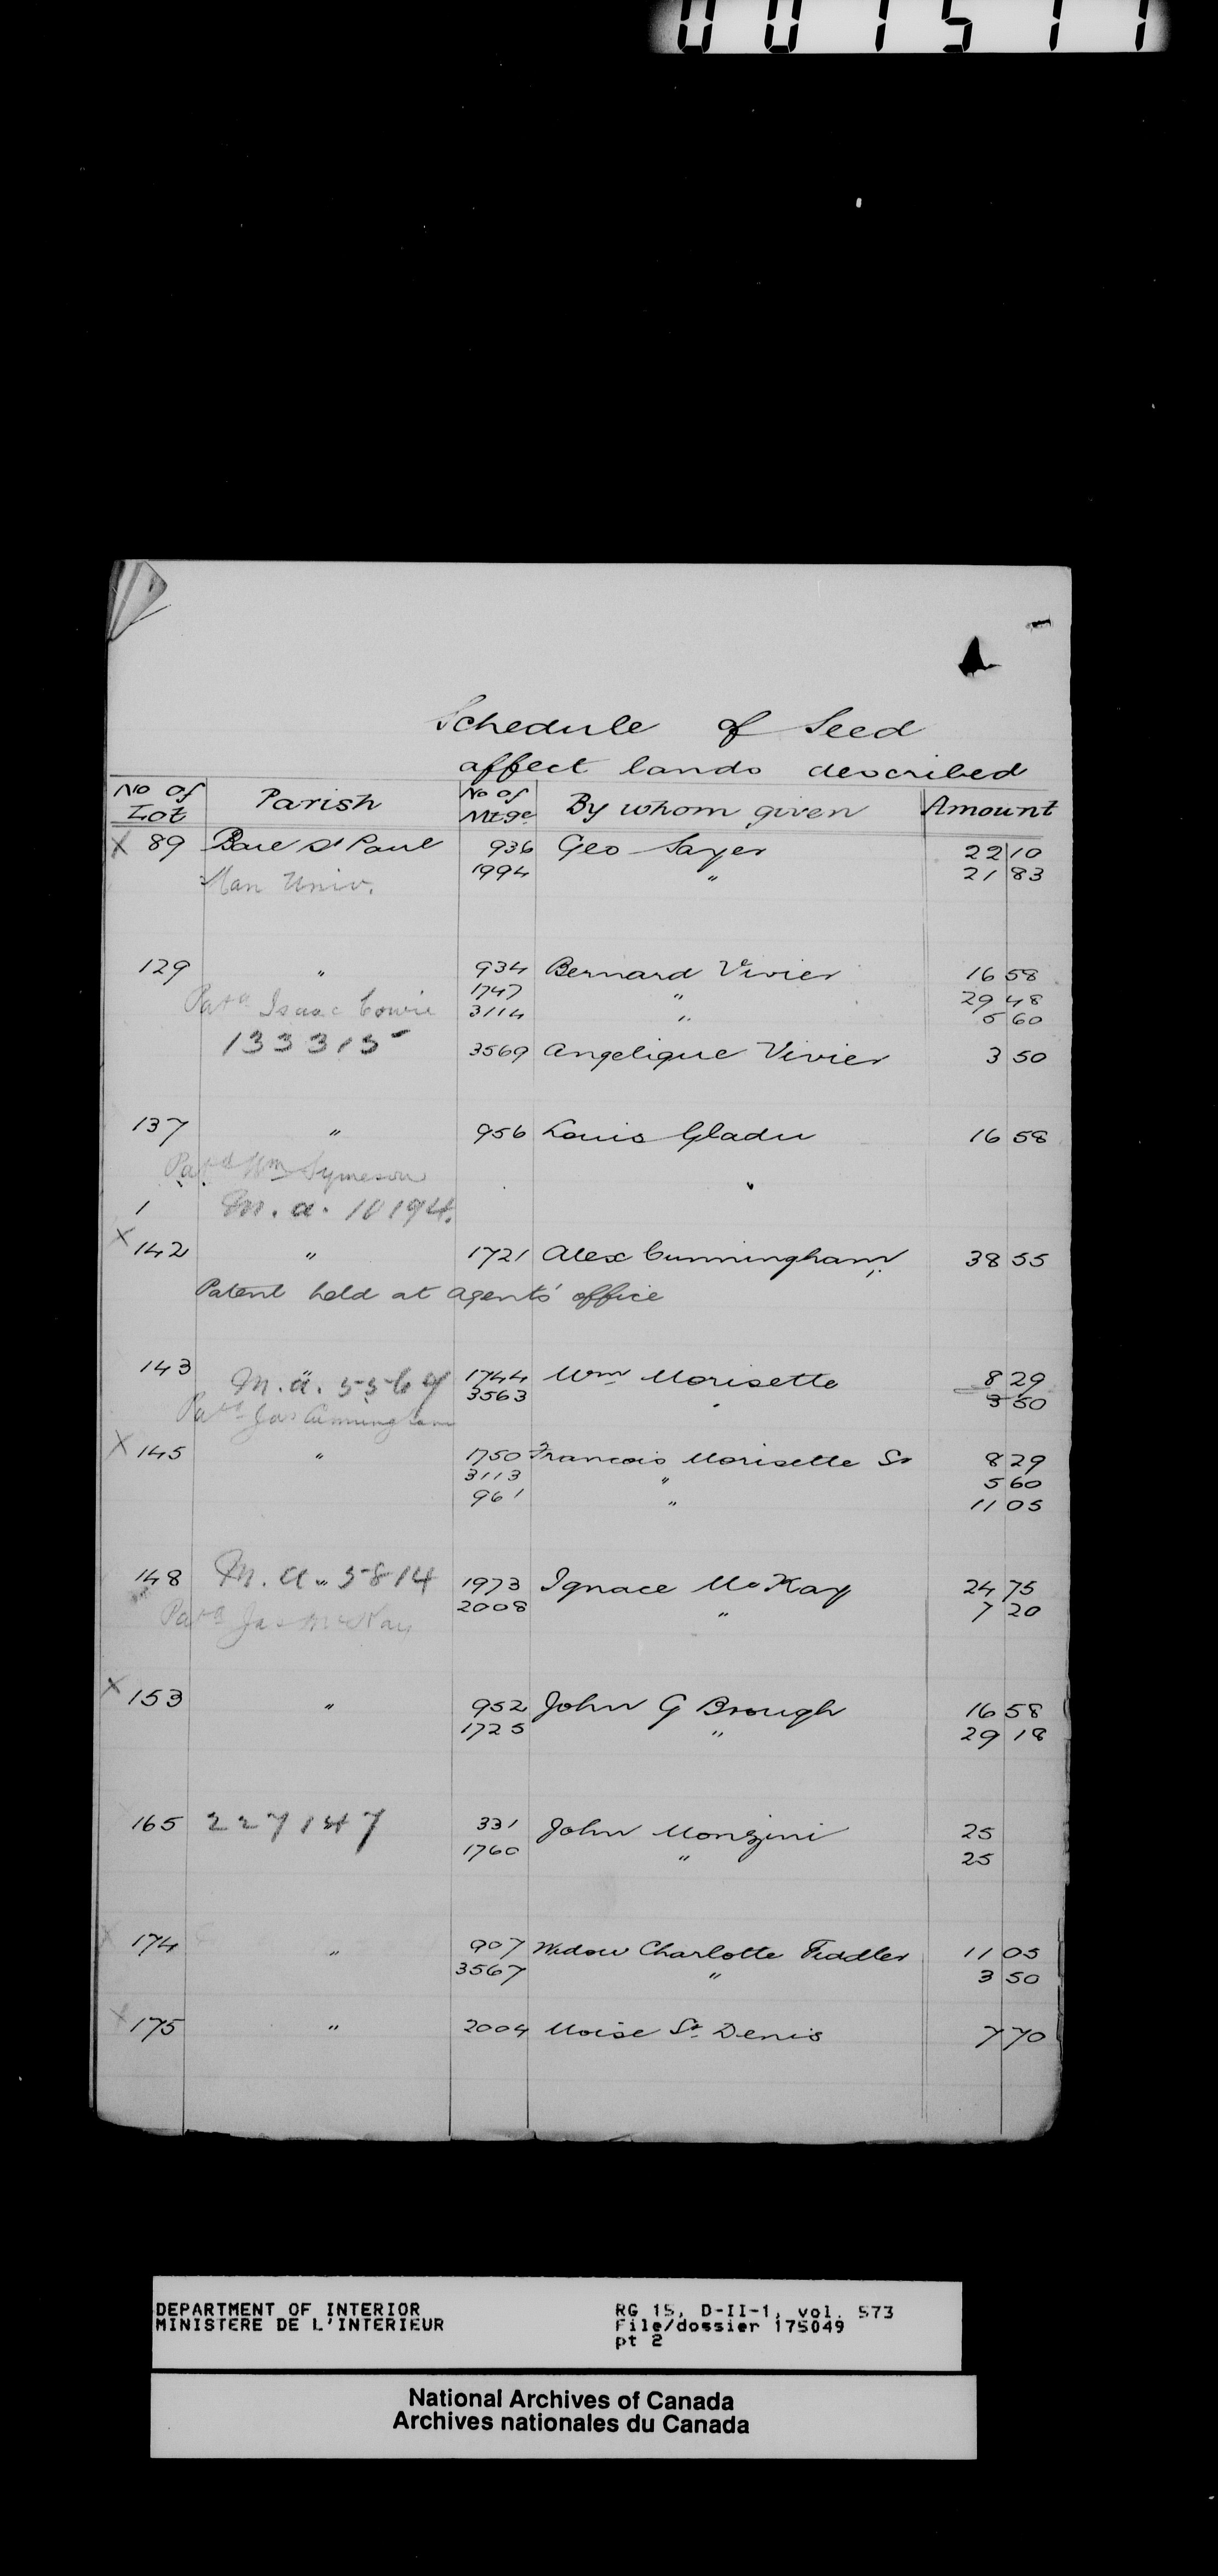 001577
Schedule of Seed
affect lands described
No of Lot Parish No of Mtge By whom given Amount
X 89 Baie St Paul 936 Geo Sayer 22 10
Man Univ. 1994 " 21 83
129 " 934 Bernard Vivier 16 58
1747 " 29 48
Patd Isaac Cowie 3114 " 5 60
133315 3569 Angelique Vivier 3 50
137 " 956 Louis Gladu 16 58
Patd Wm Symeson
1 M.a. 10194.
X 142 " 1721 Alex Cunningham 38 55
Patent held at agents' office
143 " 1744 Wm Morisette 8 29
M.a. 5569 3563 " 3 50
Patd Jas Cunningham
X 145 " 1750 Francois Morisette Sr 8 29
3113 " 5 60
961 " 11 05
148 M.a. " 5814 1973 Ignace McKay 24 75
2008 " 7 20
Patd Jas McKay
X 153 " 952 John G Brough 16 58
1725 " 29 18
165 227147 331 John Monzini 25
1760 " 25
X 174 " 907 Widow Charlotte Fiddler 11 05
3567 " 3 50
X 175 " 2004 Moise St. Denis 7 70
DEPARTMENT OF INTERIOR RG 15, D-II-1, vol. 573
MINISTERE DE L'INTERIEUR File/dossier 175049
pt 2
National Archives of Canada
Archives nationales du Canada